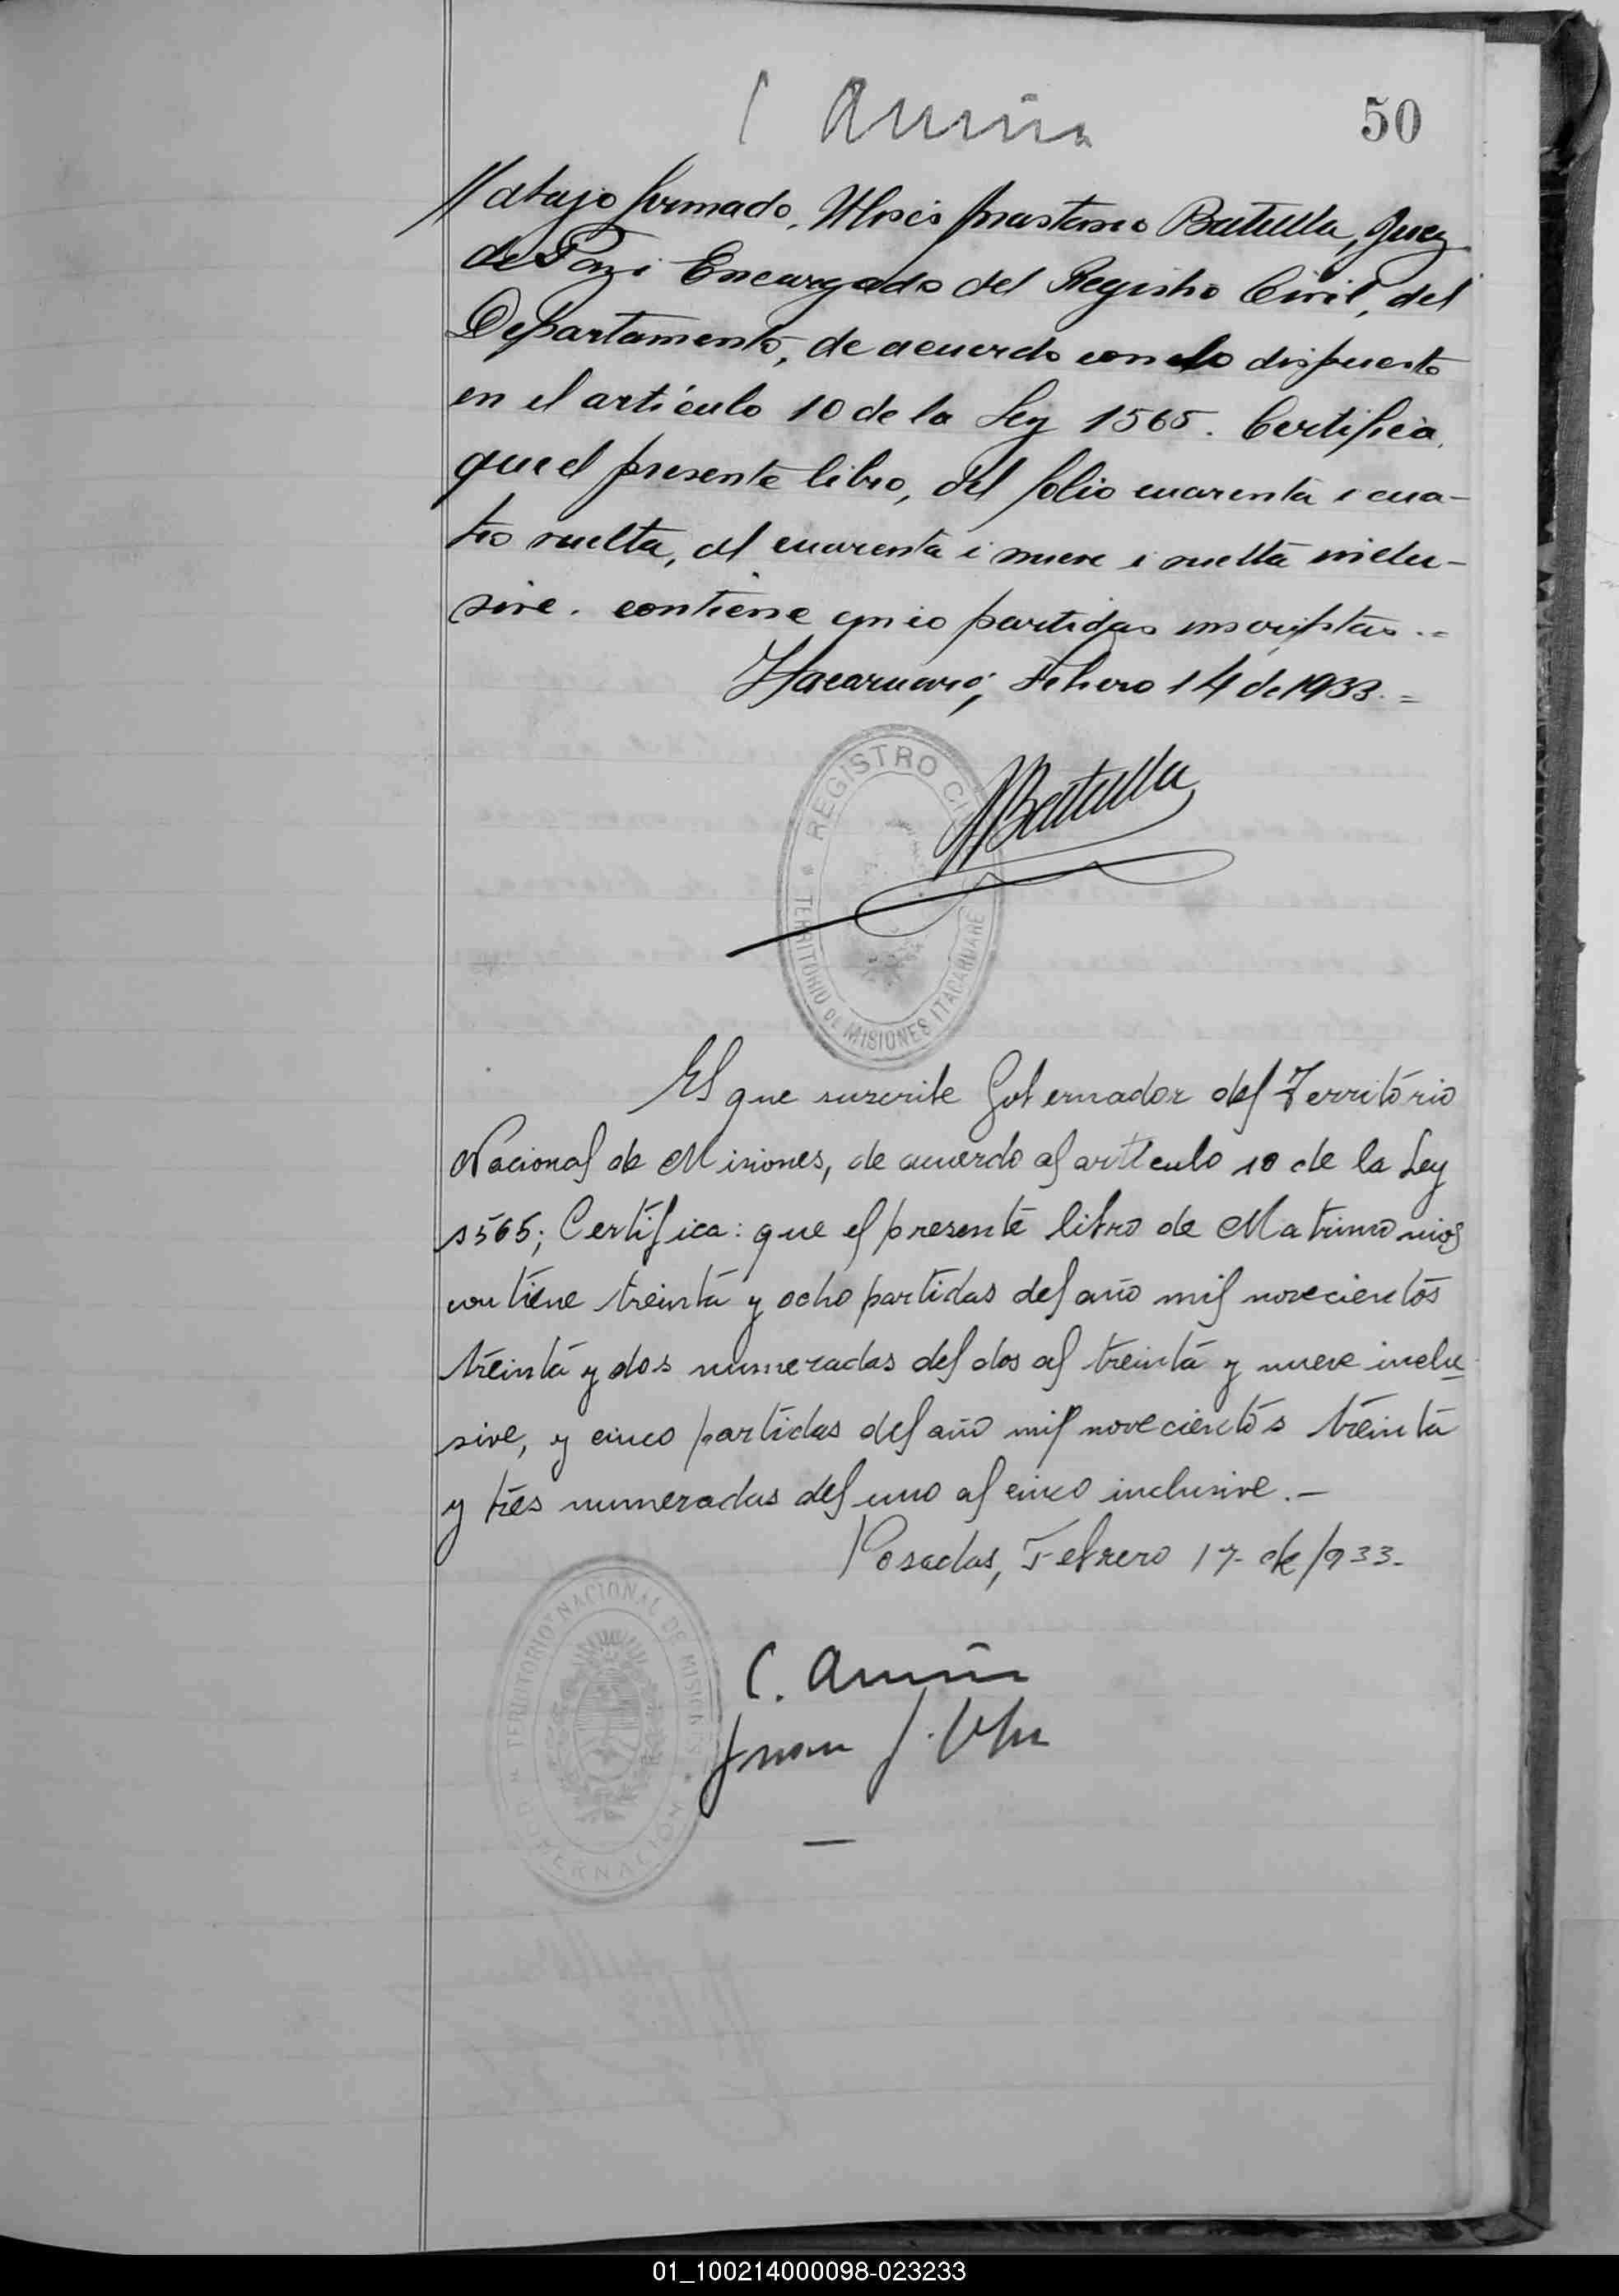 50
// abajo firmado, Ulises Anastasio Batulla, Juez
de Paz i Encargado del Registro Civil, del
Departamento, de acuerdo con lo dispuesto
en el artículo 10 de la Ley 1565. Certifica,
que el presente libro, del folio cuarenta i cua-
tro vuelta, al cuarenta i nueve i vuelta inclu-
sive. contiene cinco partidas inscriptas.=
Itacaruaré, Febrero 14 de 1933.=
REGISTRO CI
TERRITORIO DE MISIONES ITACARUARE
ABatulla
El que suscribe Gobernador del Território
Nacional de Misiones, de acuerdo al artículo 10 de la Ley
1565; Certifica: que el presente libro de Matrimonios
contiene treinta y ocho partidas del año mil novecientos
treinta y dos numeradas del dos al treinta y nueve inclu
sive, y cinco partidas del año mil novecientos treinta
y tres numeradas del uno al cinco inclusive.-
Posadas, Febrero 17 de 1933-
TERRITORIO NACIONAL DE MISIONES
GOBERNACION
01_100214000098-023233